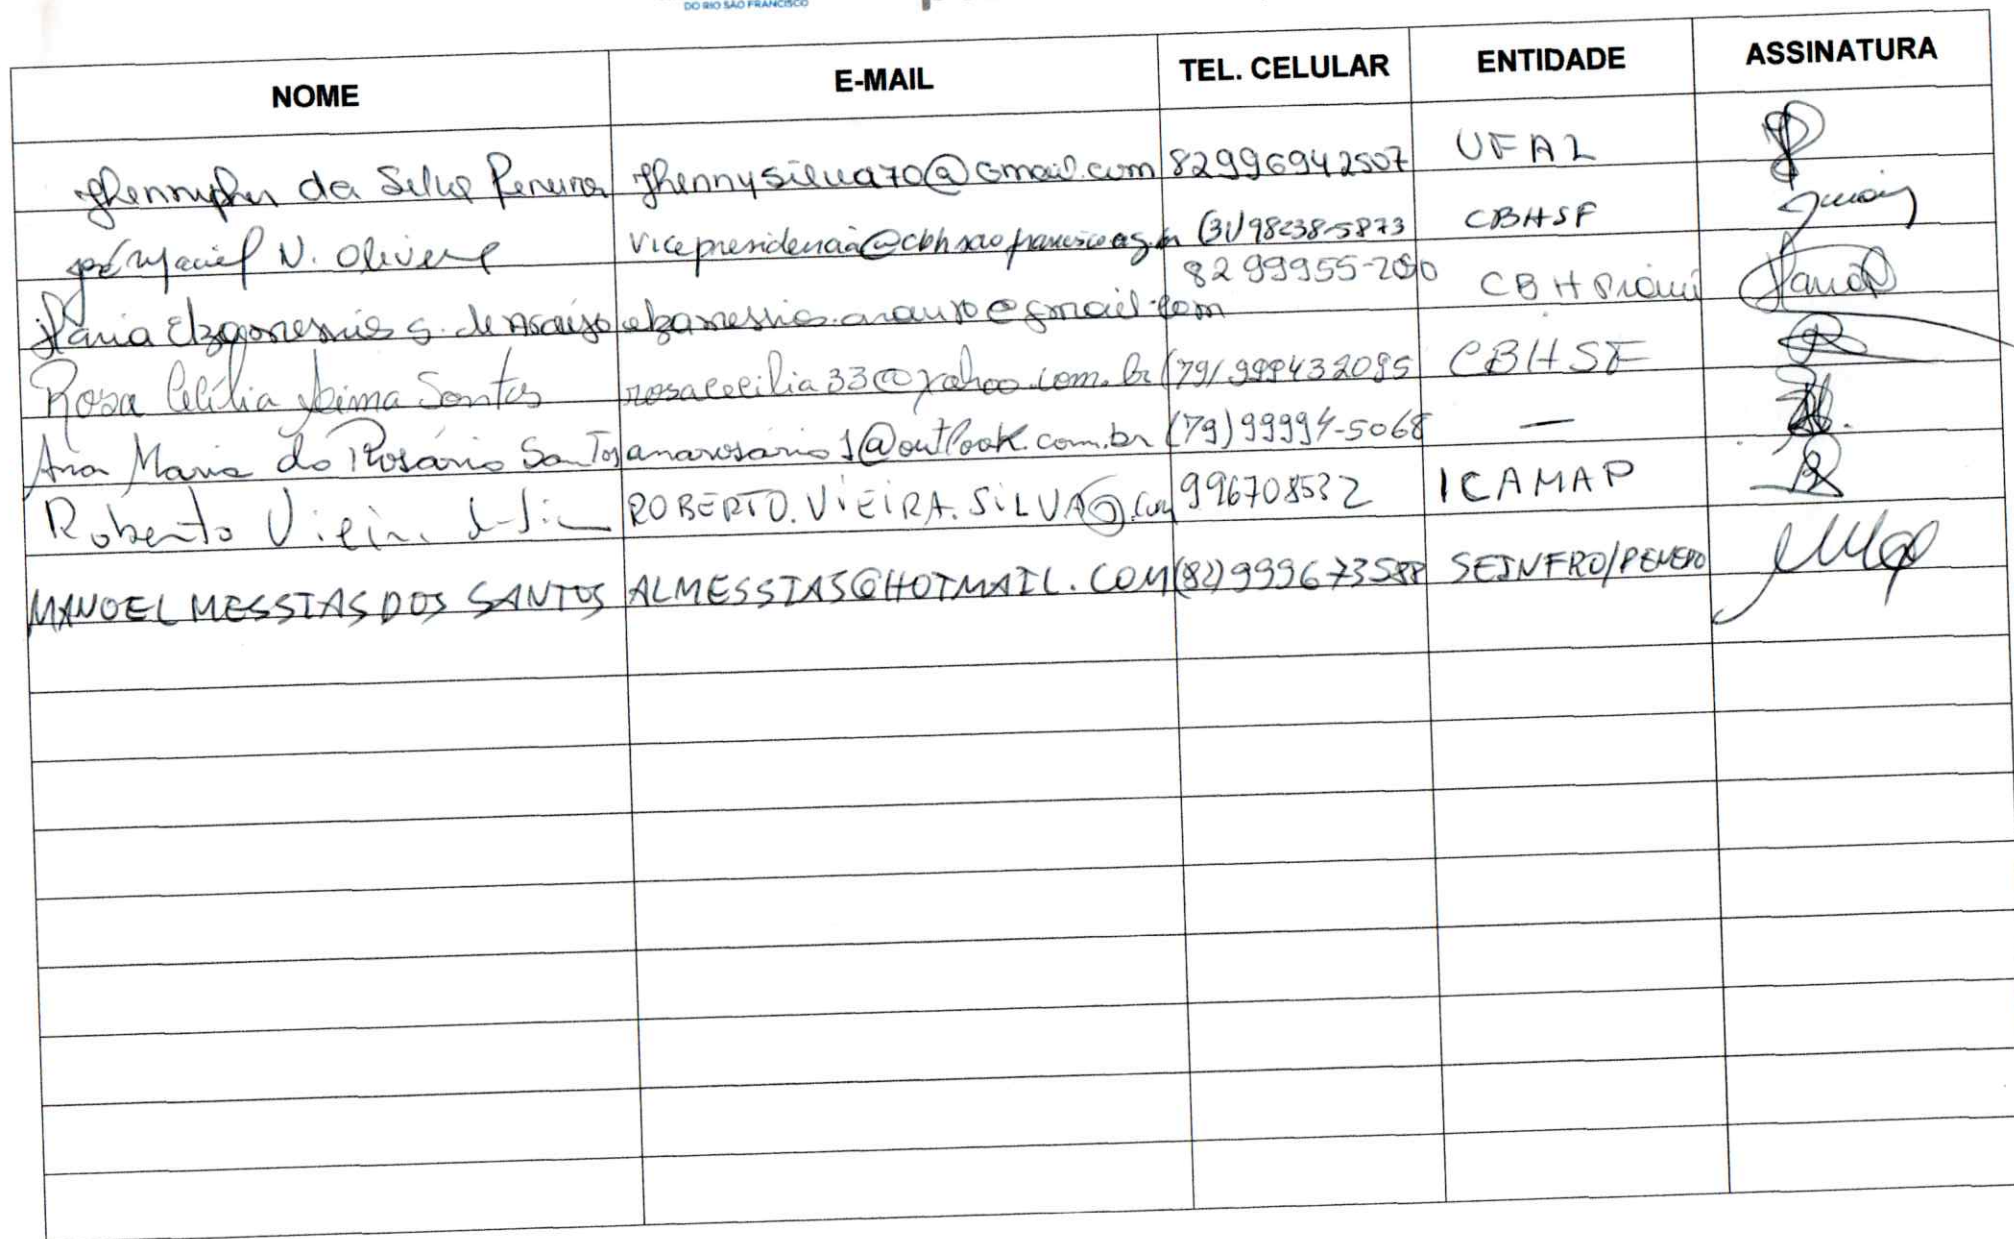 DO RIO SÃO FRANCISCO
NOME E-MAIL TEL. CELULAR ENTIDADE ASSINATURA
Jhennypher da Silva Pereira jhennysilva70@gmail.com 82996942507 UFAL
José Maciel N. Oliveira vicepresidencia@cbhsaofrancisco.org.br (31) 98238-5873 CBHSF
Maria 8299955-2000 CBH Piauí
Rosa Cecília Lima Santos rosacecilia33@yahoo.com.br (79) 999432095 CBHSF
Ana Maria do Rosário Santos anarosario1@outlook.com.br (79) 99994-5068 —
Roberto Vieira ROBERTO.VIEIRA.SILVA@.com 996708532 ICAMAP
MANOEL MESSIAS DOS SANTOS ALMESSIAS@HOTMAIL.COM (82) 999673588 SEINFRO/PENEDO